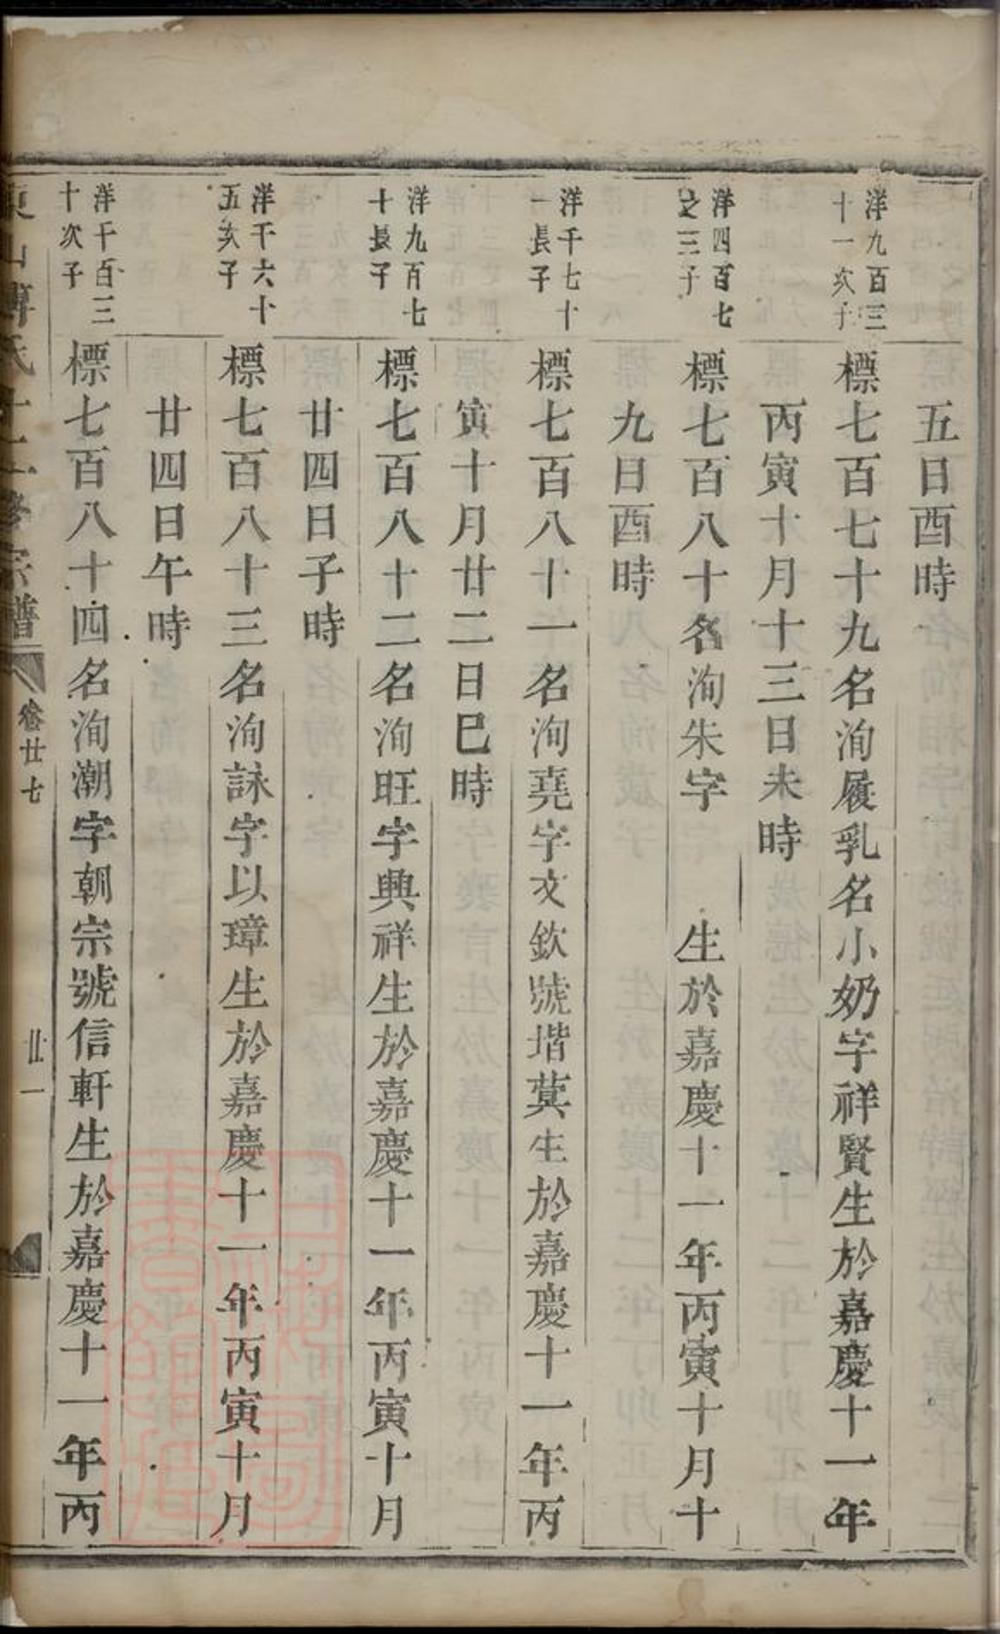 五日酉時
洋九百三
十一次子
標七百七十九名洵履乳名小奶字祥賢生於嘉慶十一年
丙寅十月十三日未時
洋四百七
之三子
標七百八十名洵朱字 生於嘉慶十一年丙寅十月十
九日酉時
洋千七十
一長子
標七百八十一名洵堯字文欽號堦蓂生於嘉慶十一年丙
寅十月廿二日巳時
洋九百七
十長子
標七百八十二名洵旺字興祥生於嘉慶十一年丙寅十月
廿四日子時
洋千六十
五次子
標七百八十三名洵詠字以璋生於嘉慶十一年丙寅十月
廿四日午時
洋千百三
十次子
標七百八十四名洵潮字朝宗號信軒生於嘉慶十一年丙
氏
修宗譜
卷廿七
廿一